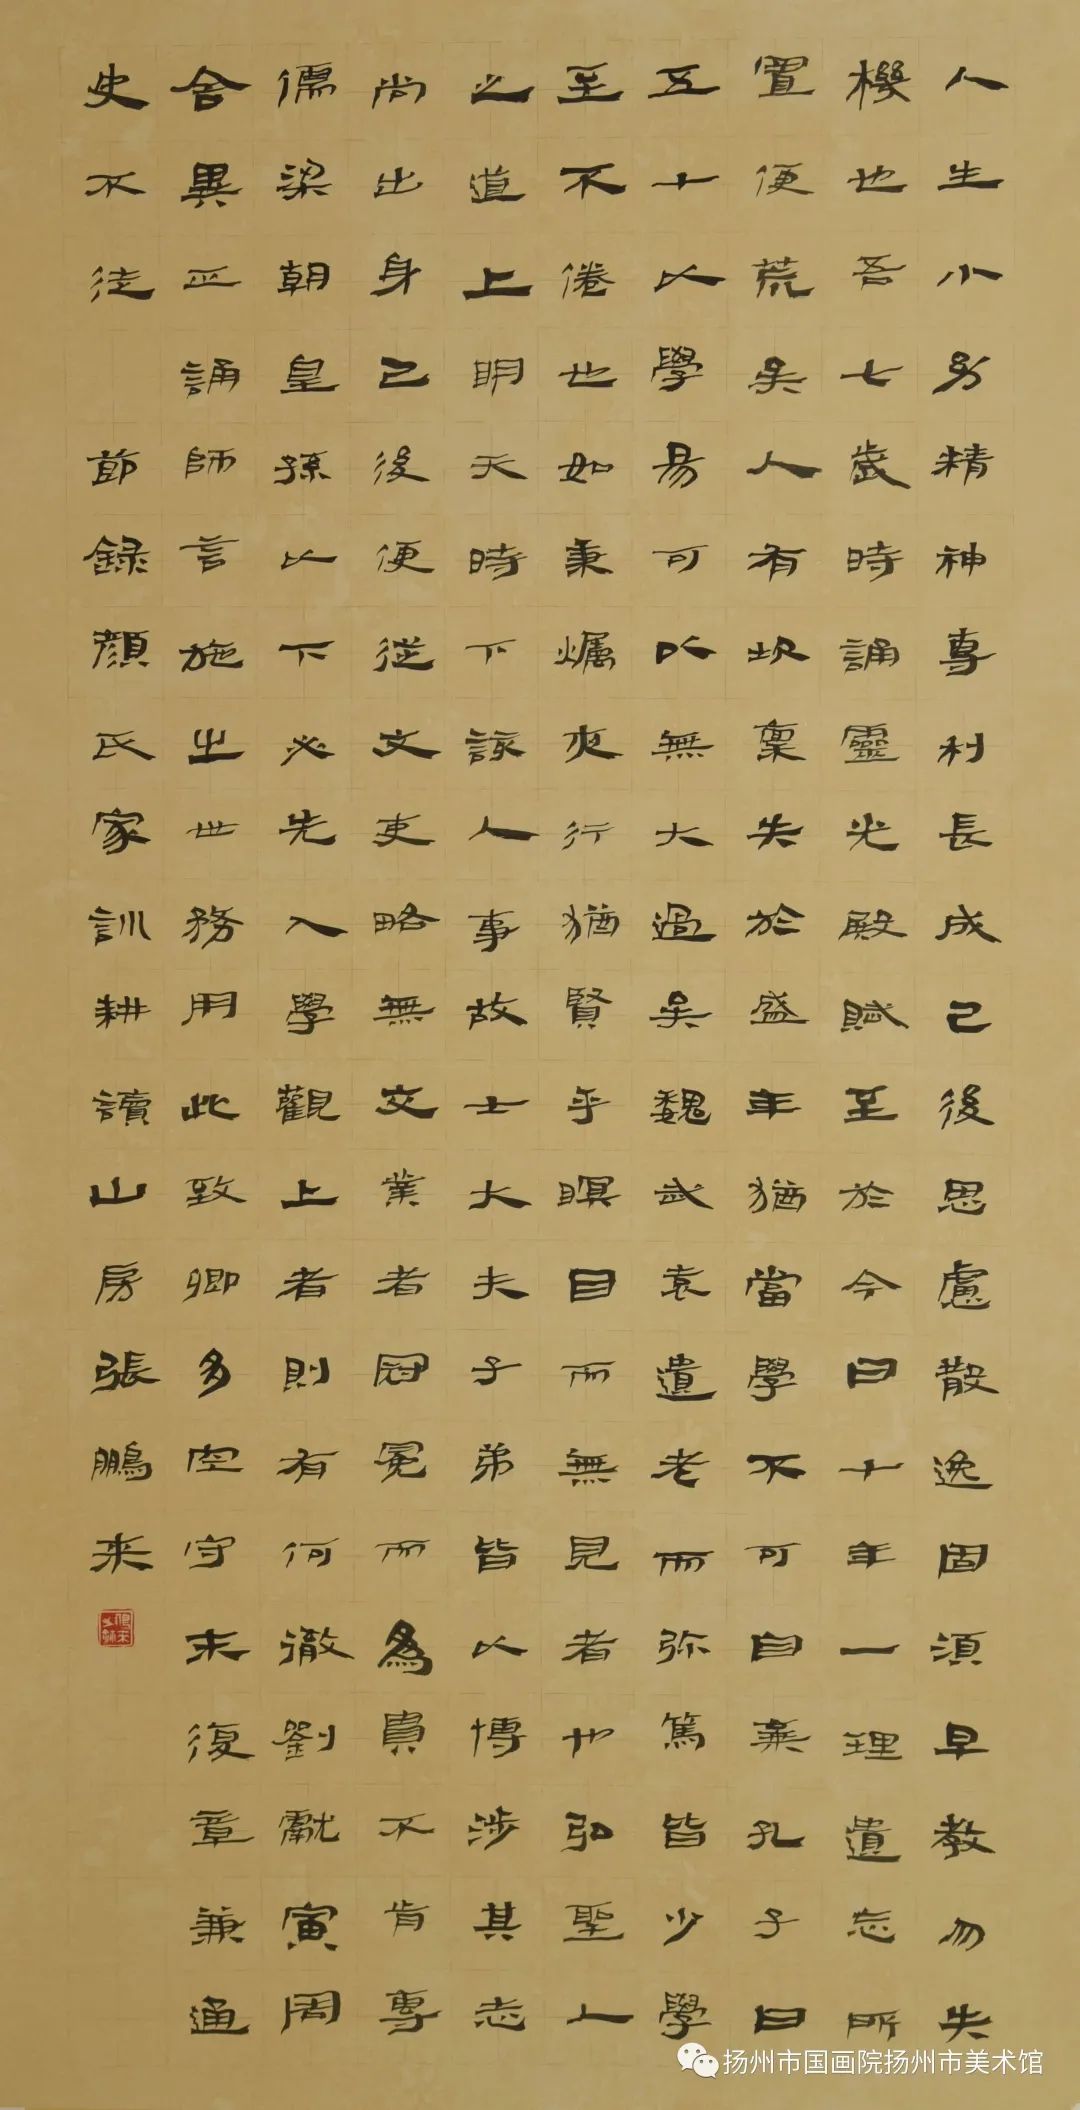 人生小幼精神專利長成已後思慮散逸固須早教勿失
機也吾七歲時誦靈光殿賦至於今日十年一理遺忘所
置便荒矣人有坎稟失於盛年猶當學不可自棄孔子曰
五十以學易可以無大過矣魏武袁遺老而弥篤皆少學
至不倦也如秉爥夜行猶賢乎瞑目而無見者也弘聖人
之道上明天時下詠人事故士大夫子弟皆以博涉其志
尚出身已後便從文吏略無文業者冠冕而為貴不肯專
儒梁朝皇孫以下必先入學觀上者則有何徹劉獻寅周
舍異正誦師言施之世務用此致卿多空守末復章兼通
史不徒 節錄顏氏家訓耕讀山房張鵬来
扬州市国画院扬州市美术馆